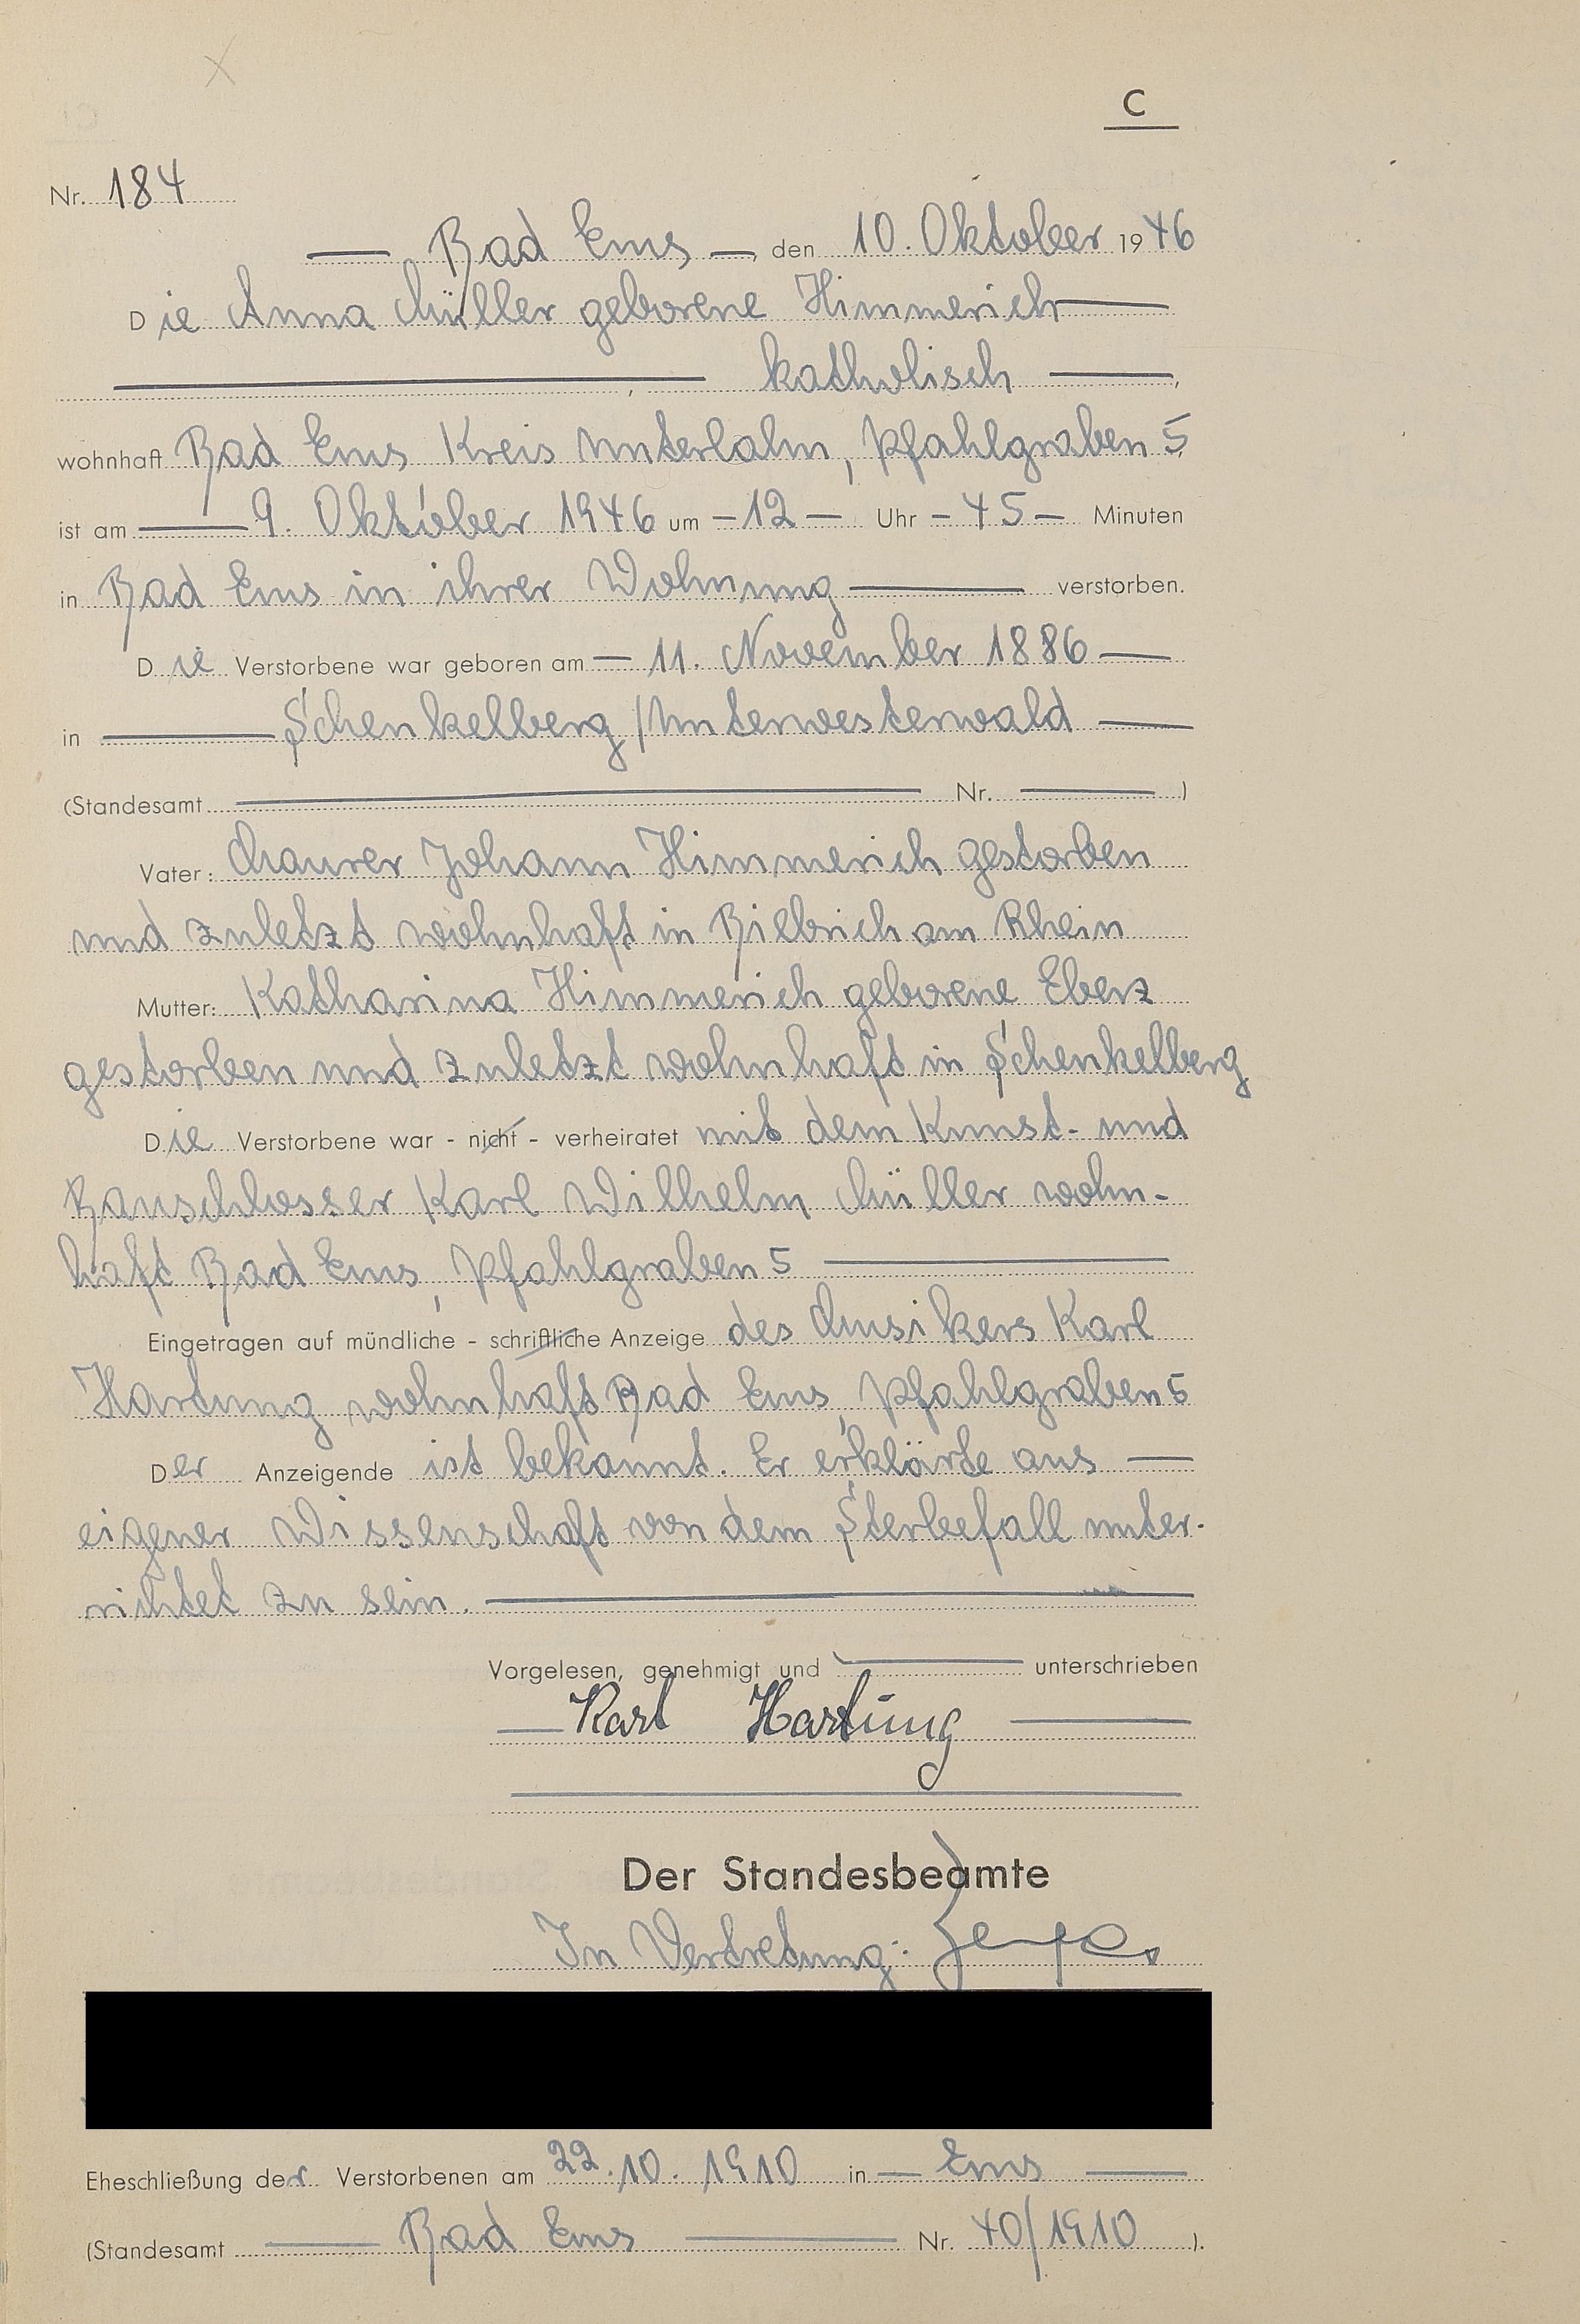 C
Nr. 184
Bad Ems, den 10. Oktober 1946
Die Anna Müller geborene Himmerich
, katholisch,
wohnhaft Bad Ems Kreis Unterlahn, Pfahlgraben 5,
ist am 9. Oktober 1946 um - 12 - Uhr - 45 - Minuten
in Bad Ems in ihrer Wohnung verstorben.
Die Verstorbene war geboren am - 11. November 1886
in Schenkelberg/Unterwesterwald
(Standesamt Nr. )
Vater: Maurer Johann Himmerich gestorben
und zuletzt wohnhaft in Biebrich am Rhein
Mutter: Katharina Himmerich geborene Eberz
gestorben und zuletzt wohnhaft in Schenkelberg
Die Verstorbene war - nicht - verheiratet mit dem Kunst- und
Bauschlosser Karl Wilhelm Müller wohn-
haft Bad Ems, Pfahlgraben 5
Eingetragen auf mündliche - schriftliche Anzeige des Musikers Karl
Hartung wohnhaft Bad Ems, Pfahlgraben 5
Der Anzeigende ist bekannt. Er erklärte aus
eigener Wissenschaft von dem Sterbefall unter-
richtet zu sein.
Vorgelesen, genehmigt und unterschrieben
Karl Hartung
Der Standesbeamte
In Vertretung:
Eheschließung der Verstorbenen am 22.10.1910 in Ems
(Standesamt Bad Ems Nr. 40/1910 ).